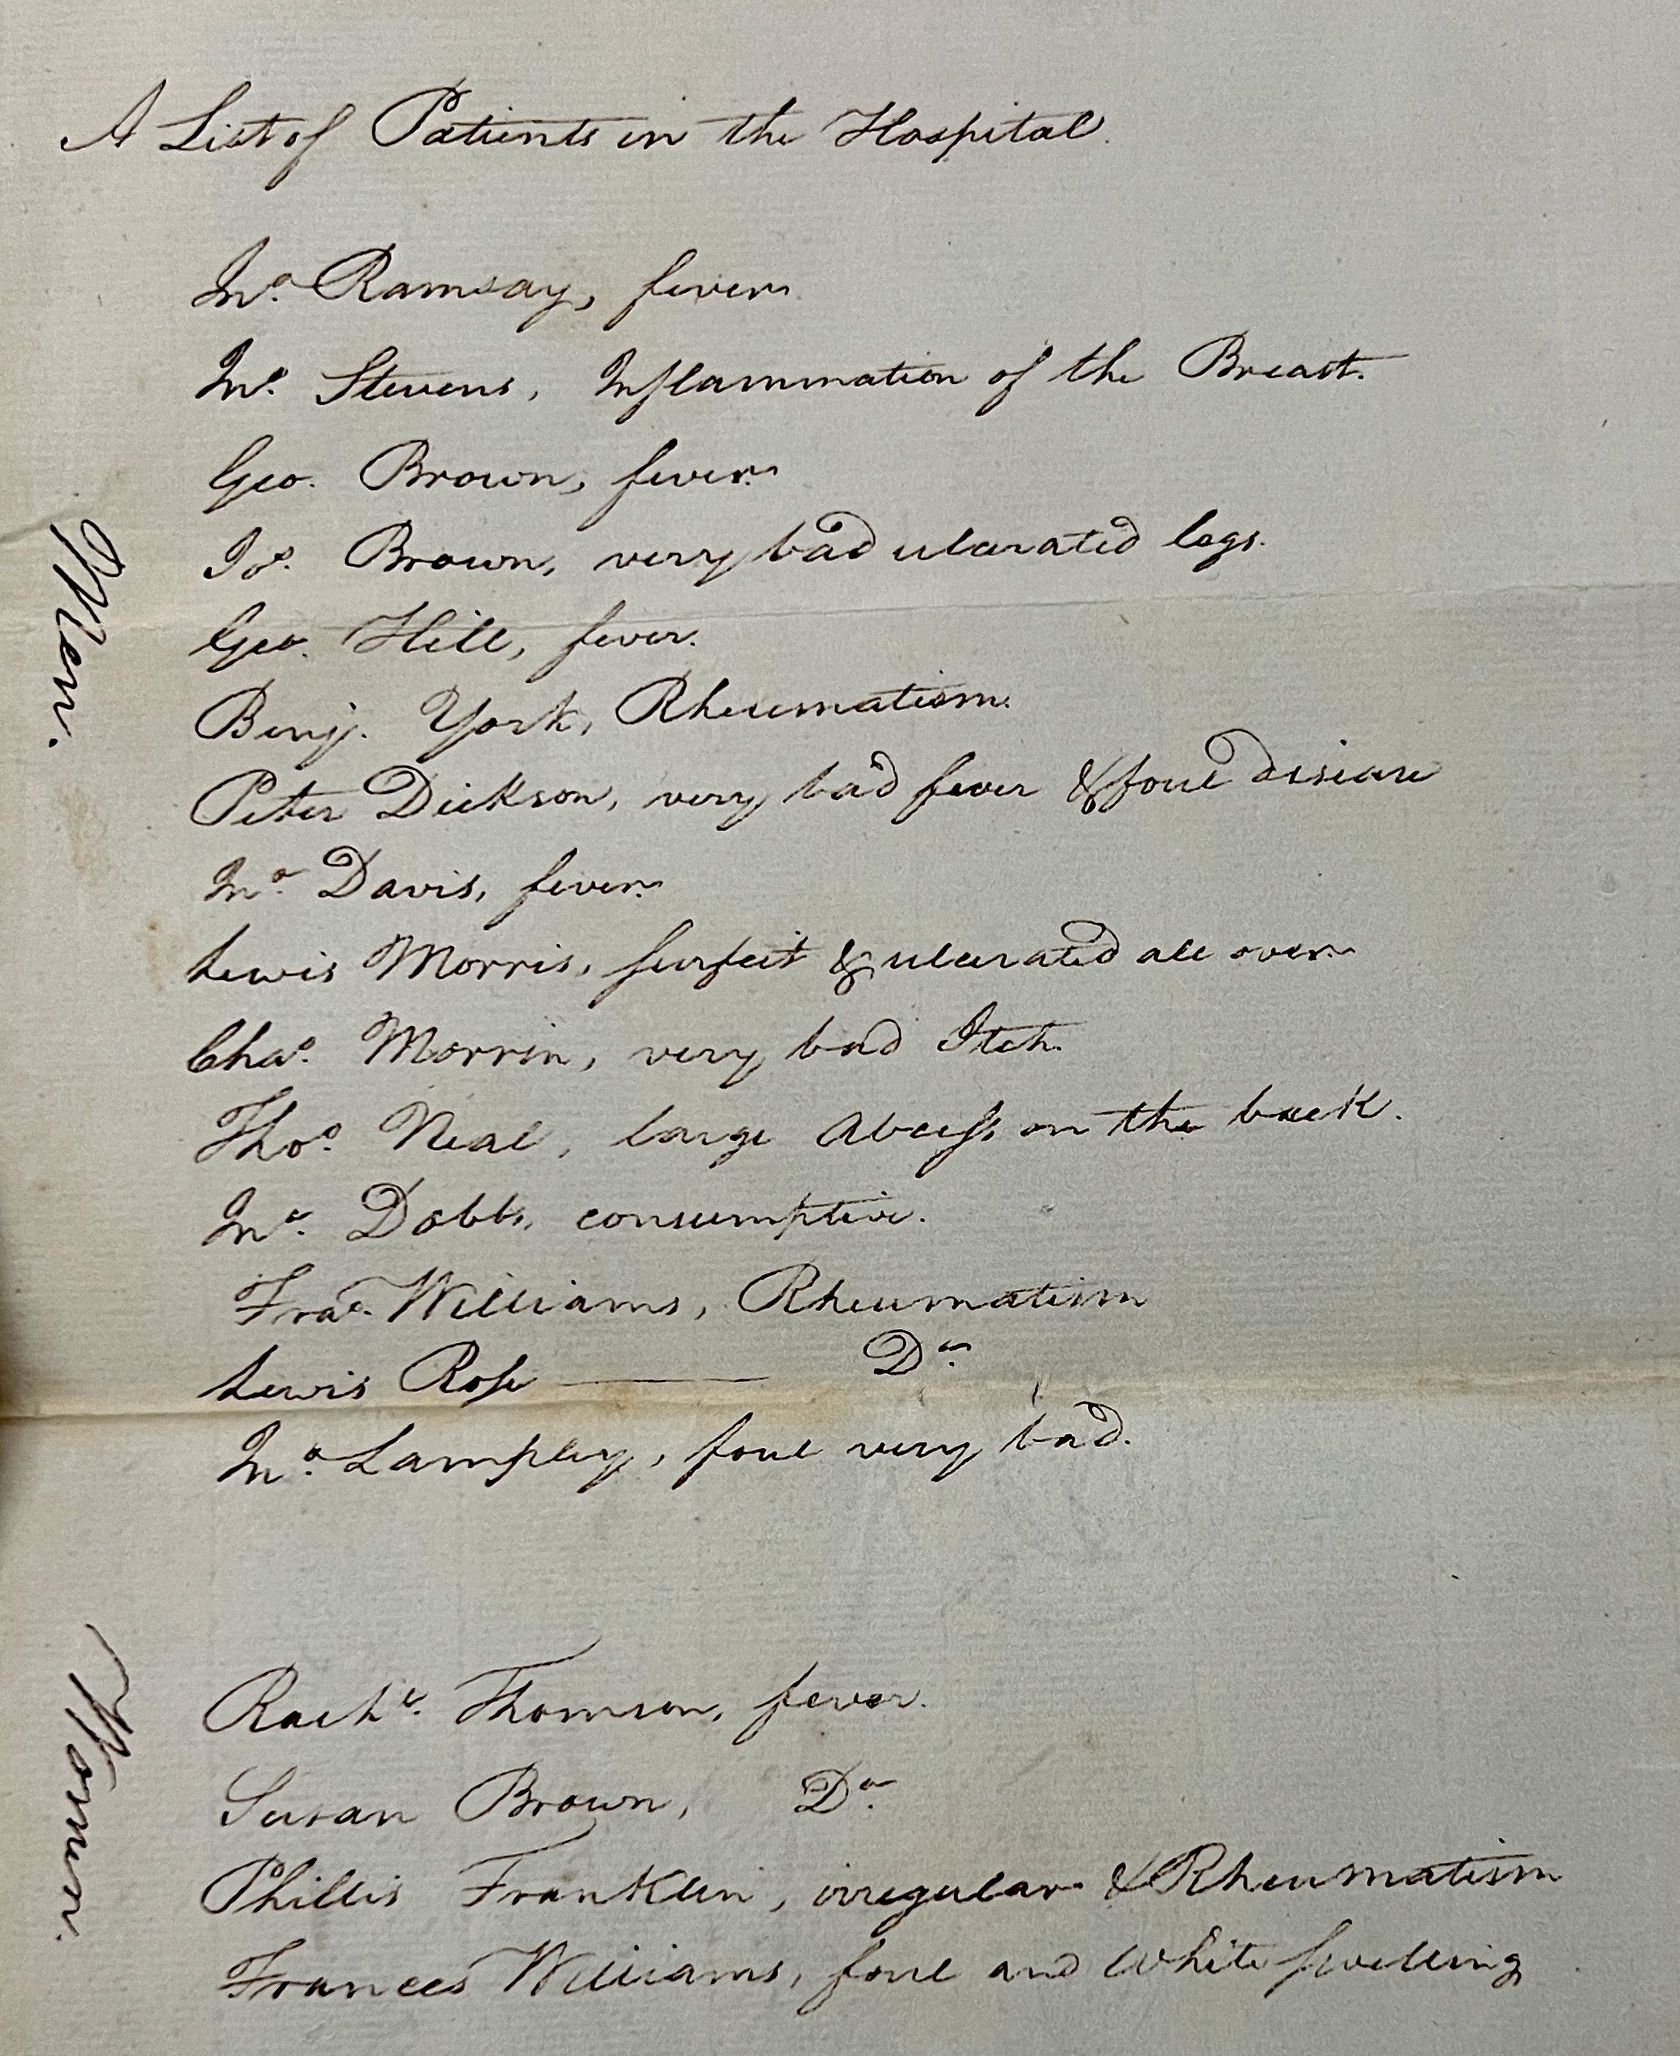 A List of Patients in the Hospital.
Jnº. Ramsay, fever.
Jnº. Stevens, Inflammation of the Breast.
Geo. Brown, fever.
Jos. Brown, very bad ulcerated legs.
Geo. Hill, fever.
Benj. York, Rheumatism.
Peter Dickson, very bad fever & foul disease
Jnº. Davis, fever.
Lewis Morris, surfeit & ulcerated all over.
Chaˢ. Morrin, very bad Itch.
Thoˢ. Neal, large Abcess on the back.
Jnº. Dobbs, consumptive.
Fraˢ. Williams, Rheumatism
Lewis Rose —— Dº.
Jnº. Lampley, foul very bad.
Men.
Rachˡ. Thomson, fever.
Susan Brown, Dº.
Phillis Franklin, irregular & Rheumatism
Frances Williams, foul and White swelling
Women.